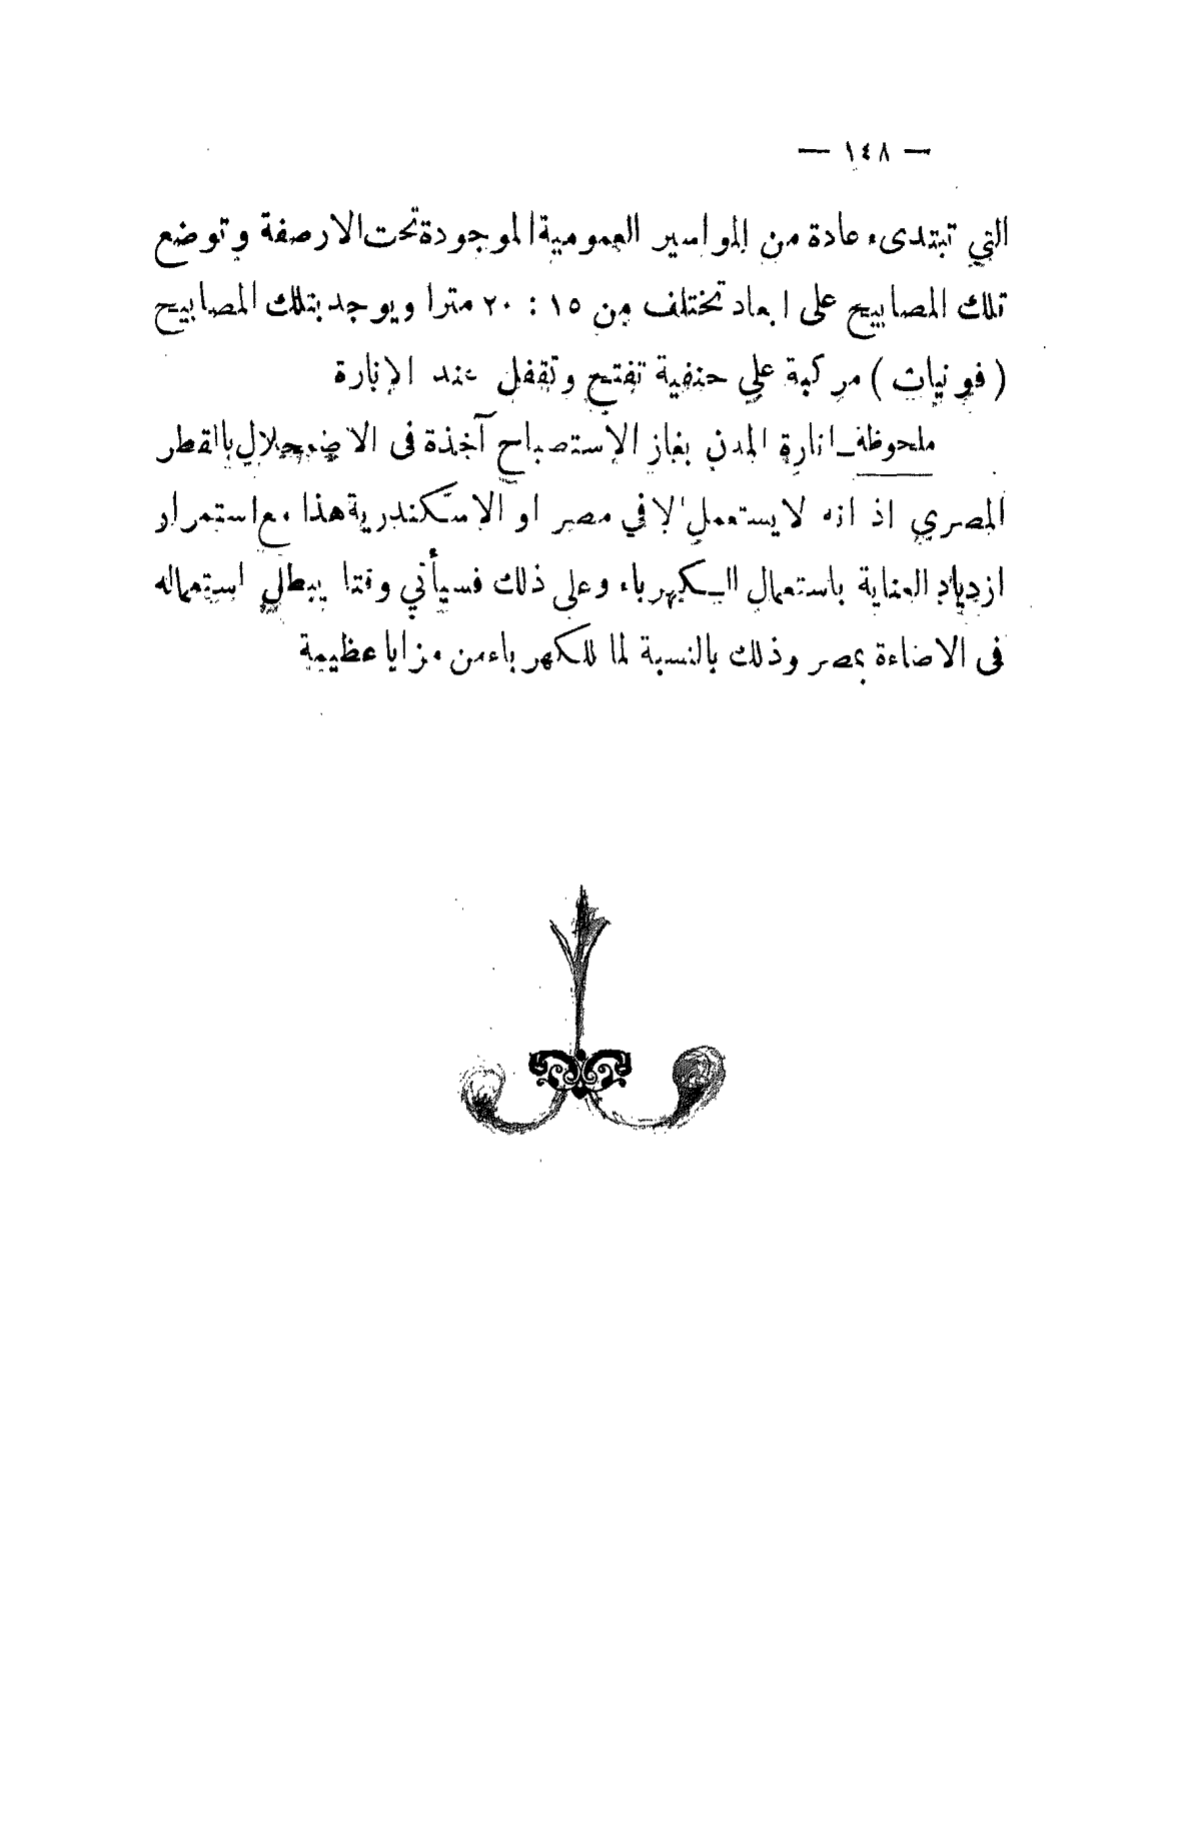 — ١٤٨ —
التي تبتدىء عادة من المواسير العمومية الموجودة تحت الارصفة وتوضع
تلك المصابيح على ابعاد تختلف من ١٥ : ٢٠ مترا ويوجد بتلك المصابيح
( فونيات ) مركبة على حنفية تفتح وتقفل عند الإنارة
ملحوظة ـ انارة المدن بغاز الإستصباح آخذة فى الاضمحلال بالقطر
المصري اذ انه لا يستعمل إلا في مصر او الاسكندرية هذا مع استمرار
ازدياد العناية باستعمال الكهرباء وعلى ذلك فسيأتي وقتا يبطل استعماله
فى الاضاءة بمصر وذلك بالنسبة لما للكهرباء من مزايا عظيمة